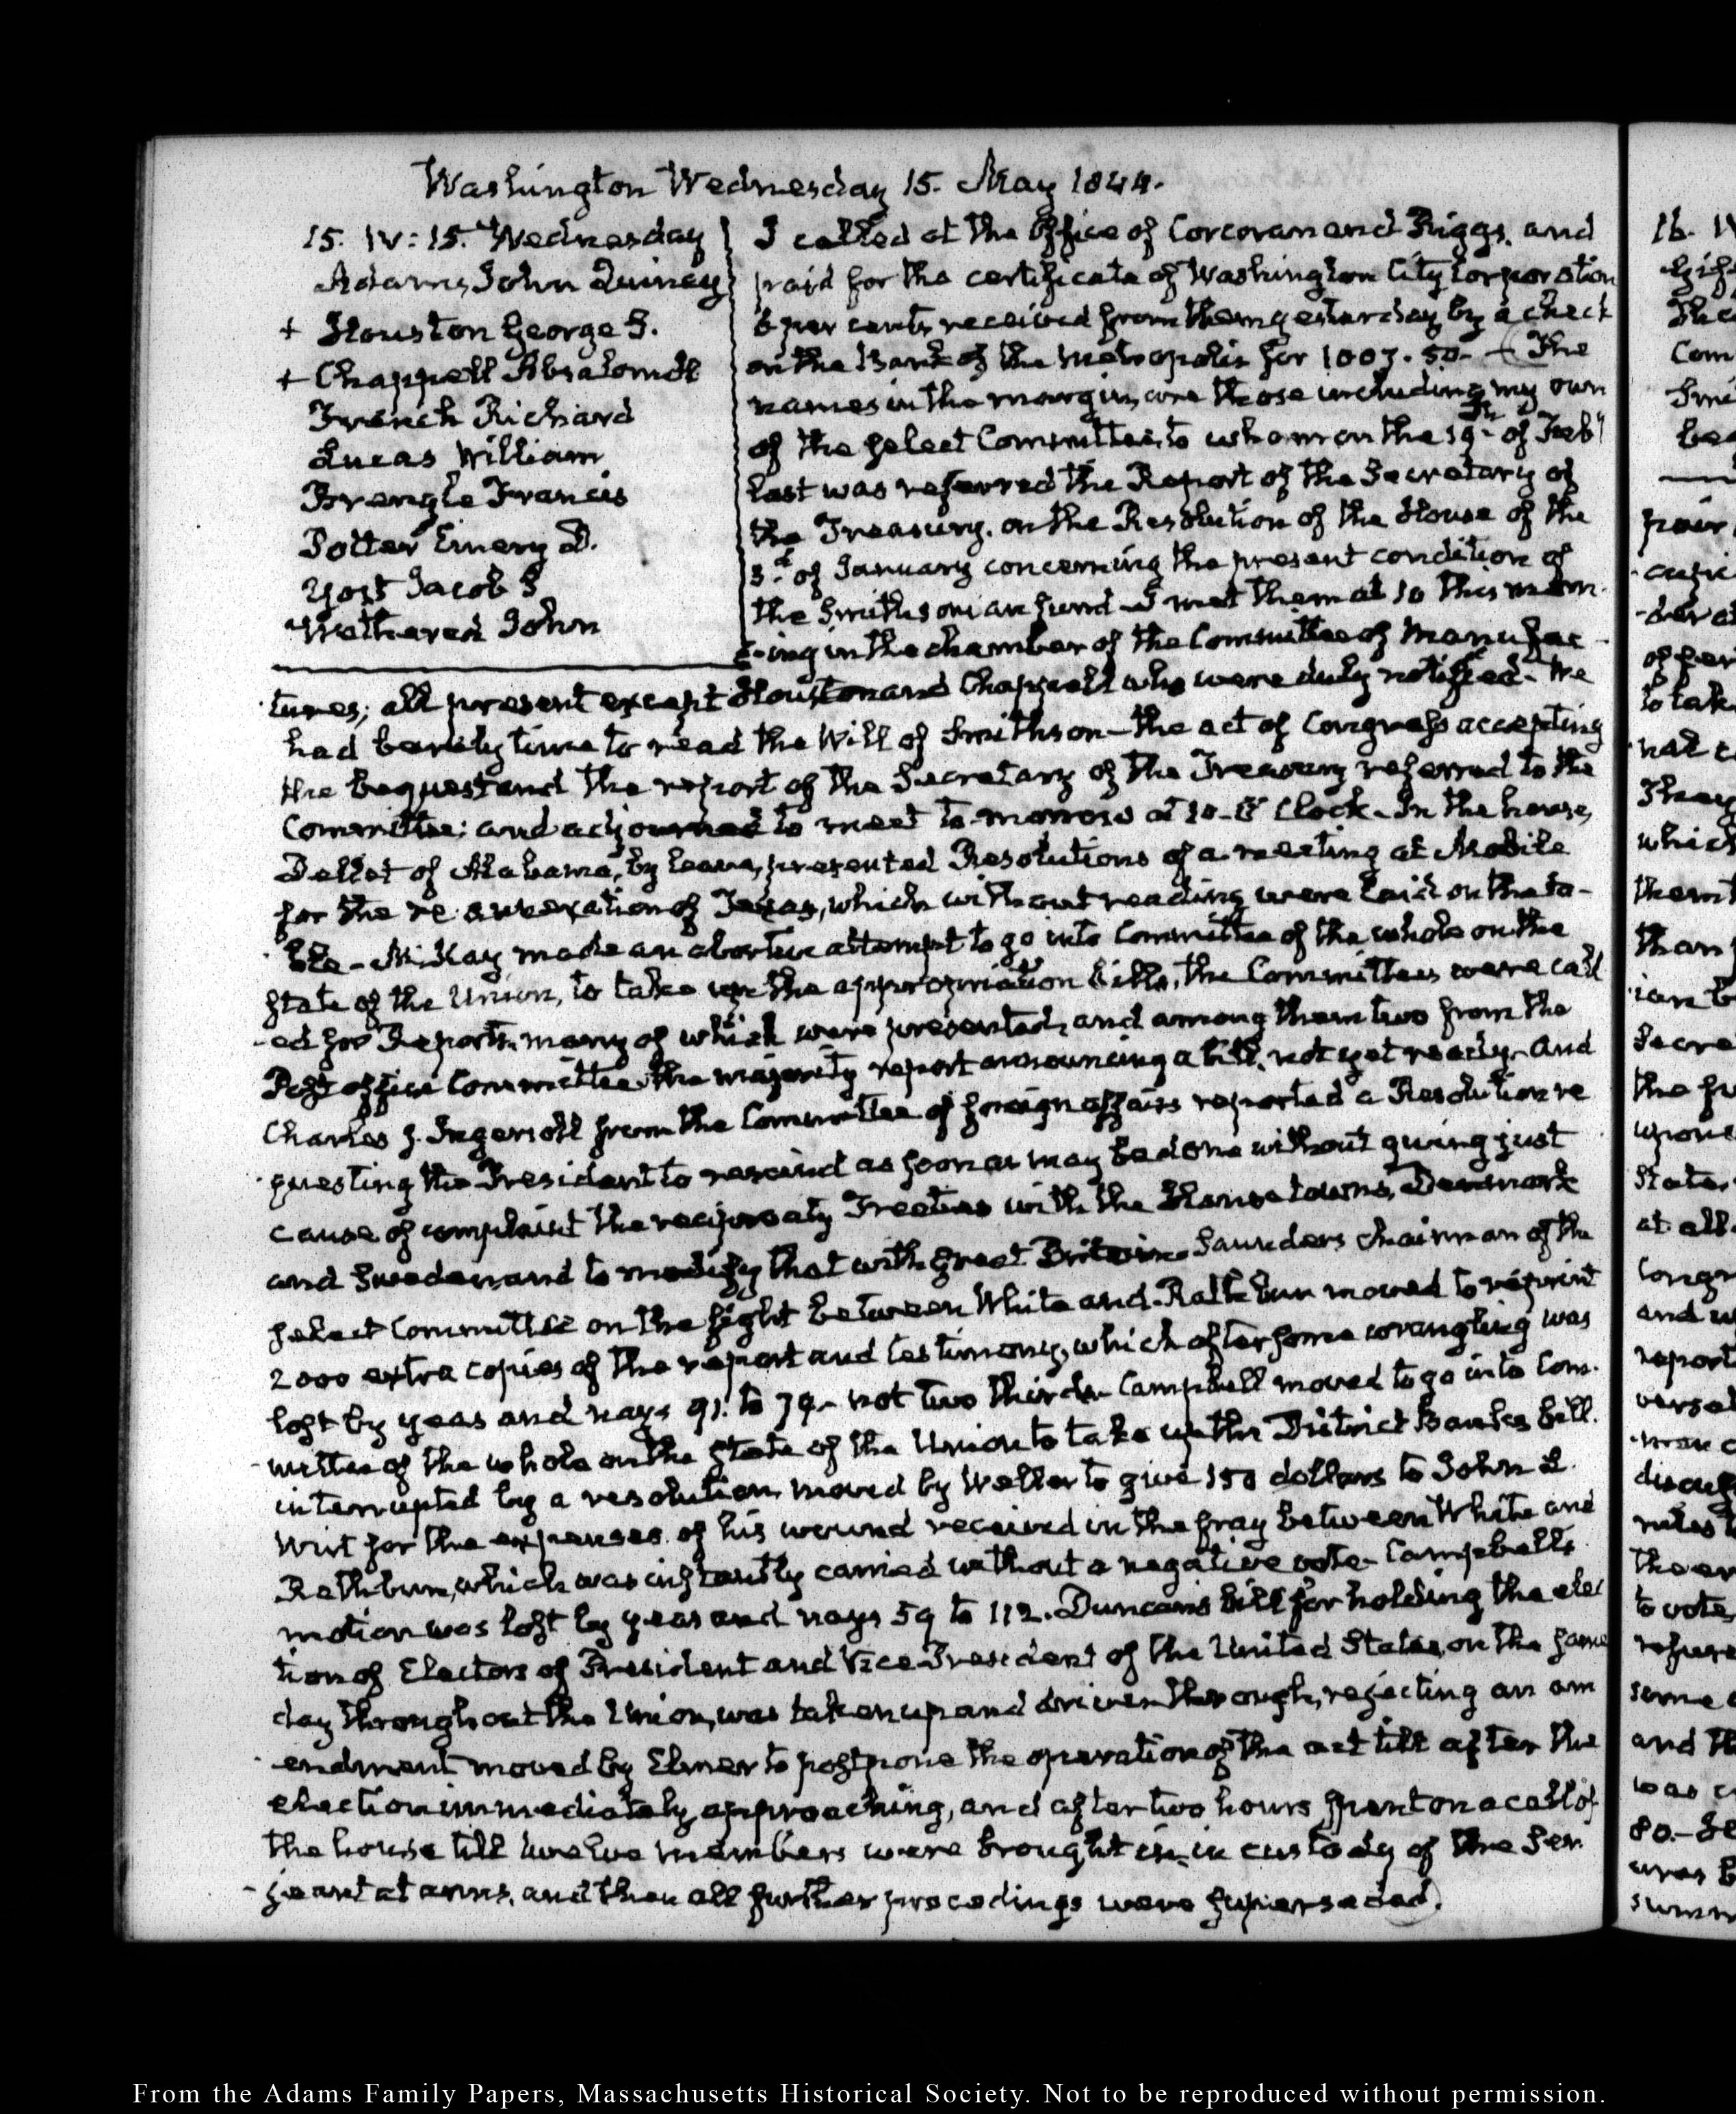 Washington Wednesday 15. May 1844.
15. IV: 15. Wednesday
Adams, John Quincy
+ Houston George S.
+ Chappell Absalom H
French Richard
Lucas William
Brengle Francis
Potter Emery D.
Yost Jacob S
Wethered John
I called at the Office of Corcoran and Riggs, and
paid for the certificate of Washington City Corporation
6 per cents, received from them yesterday, by a check
on the Bank of the Metropolis for 1007. 50. — The
names in the margin, are those including my own
of the select Committee, to whom on the 19th. of Feby
last was referred the Report of the Secretary of
the Treasury. on the Resolution of the House of the
3d. of January concerning the present condition of
the Smithsonian fund — I met them at 10 this morn-
-ing in the chamber of the Committee of Manufac-
tures; all present except Houston and Chappell who were duly notified — We
had barely time to read the Will of Smithson — the act of Congress accepting
the bequest and the report of the Secretary of the Treasury referred to the
Committee; and adjourned to meet to-morrow at 10. O' Clock — In the house,
Dellet of Alabama, by leave, presented Resolutions of a meeting at Mobile
for the re-annexation of Texas, which without reading were laid on the ta-
ble — McKay made an abortive attempt to go into Committee of the whole on the
state of the Union, to take up the appropriation bills, the Committees were call
-ed for Reports, many of which were presented, and among them two from the
Post office Committee, the majority report announcing a bill, not yet ready — and
Charles J. Ingersoll from the Committee of foreign affairs reported a Resolution re
questing the President to rescind as soon as may be done without giving just
cause of complaint the reciprocity Treaties with the Hanse towns, Denmark
and Sweden and to modify that with great Britain — Saunders chairman of the
select Committee on the fight between White and Rathbun moved to reprint
2000 extra copies of the report and testimony, which after some wrangling was
lost by yeas and nays 91. to 79 — not two thirds — Campbell moved to go into Com-
mittee of the whole on the state of the Union to take up the District Banks bill.
interrupted by a resolution, moved by Weller to give 150 dollars to John L.
Wirt for the expenses of his wound received in the fray between White and
Rathbun, which was instantly carried without a negative vote — Campbell's
motion was lost by yeas and nays 59 to 112. Duncan's bill for holding the elec
tion of Electors of President and Vice-President of the United States, on the same
day throughout the Union, was taken up and driven through, rejecting an am
endment moved by Elmer to postpone the operation of the act till after the
election immediately approaching, and after two hours spent on a call of
the house till twelve members were brought in, in custody of the Ser
-jeant at arms, and then all further procedings were superseded.
From the Adams Family Papers, Massachusetts Historical Society. Not to be reproduced without permission.